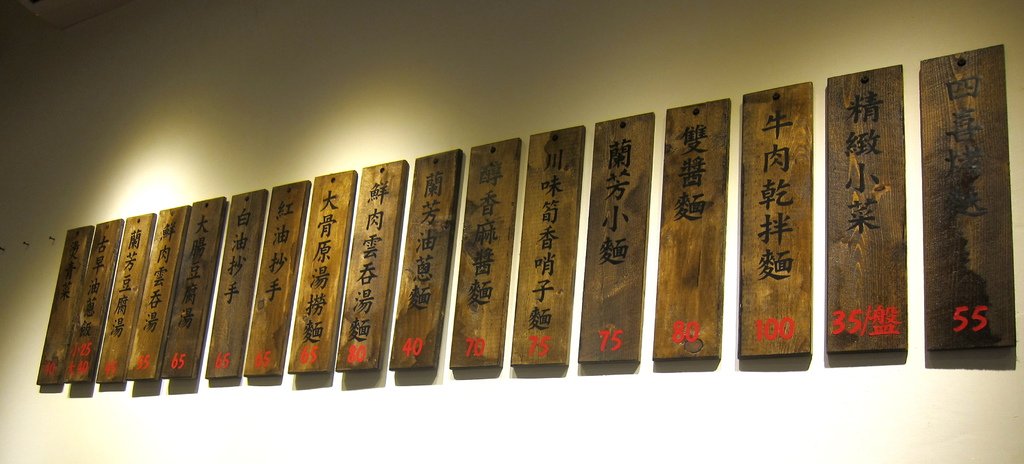 四喜烤麩
55
精緻小菜
35/盤
牛肉乾拌麵
100
雙醬麵
80
蘭芳小麵
75
川味筍香哨子麵
75
醇香麻醬麵
70
蘭芳油蔥麵
40
鮮肉雲吞湯麵
80
大骨原湯撈麵
65
紅油抄手
65
白油抄手
65
大腸豆腐湯
65
鮮肉雲吞湯
55
蘭芳豆腐湯
古早油蔥飯
燙青菜